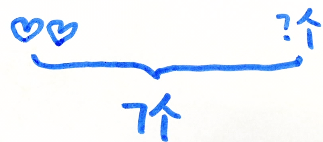 ?个
7个